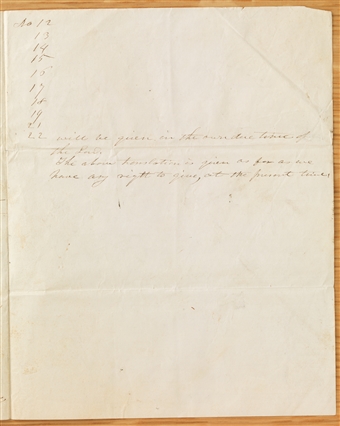 No 12
13
14
15
16
17
18
19
21
22 will be given in the own due time of
the Lord
The above translation is given as far as we
have any right to give, at the present time,